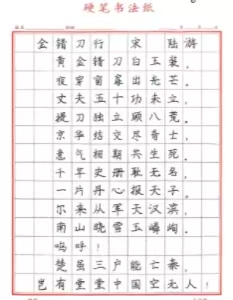 硬笔书法纸
金错刀行 宋 陆游
黄金错刀白玉装，
夜穿窗扉出光芒。
丈夫五十功未立，
提刀独立顾八荒。
京华结交尽奇士，
意气相期共生死。
千年史册耻无名，
一片丹心报天子。
尔来从军天汉滨，
南山晓雪玉嶙峋。
呜呼！
楚虽三户能亡秦，
岂有堂堂中国空无人！